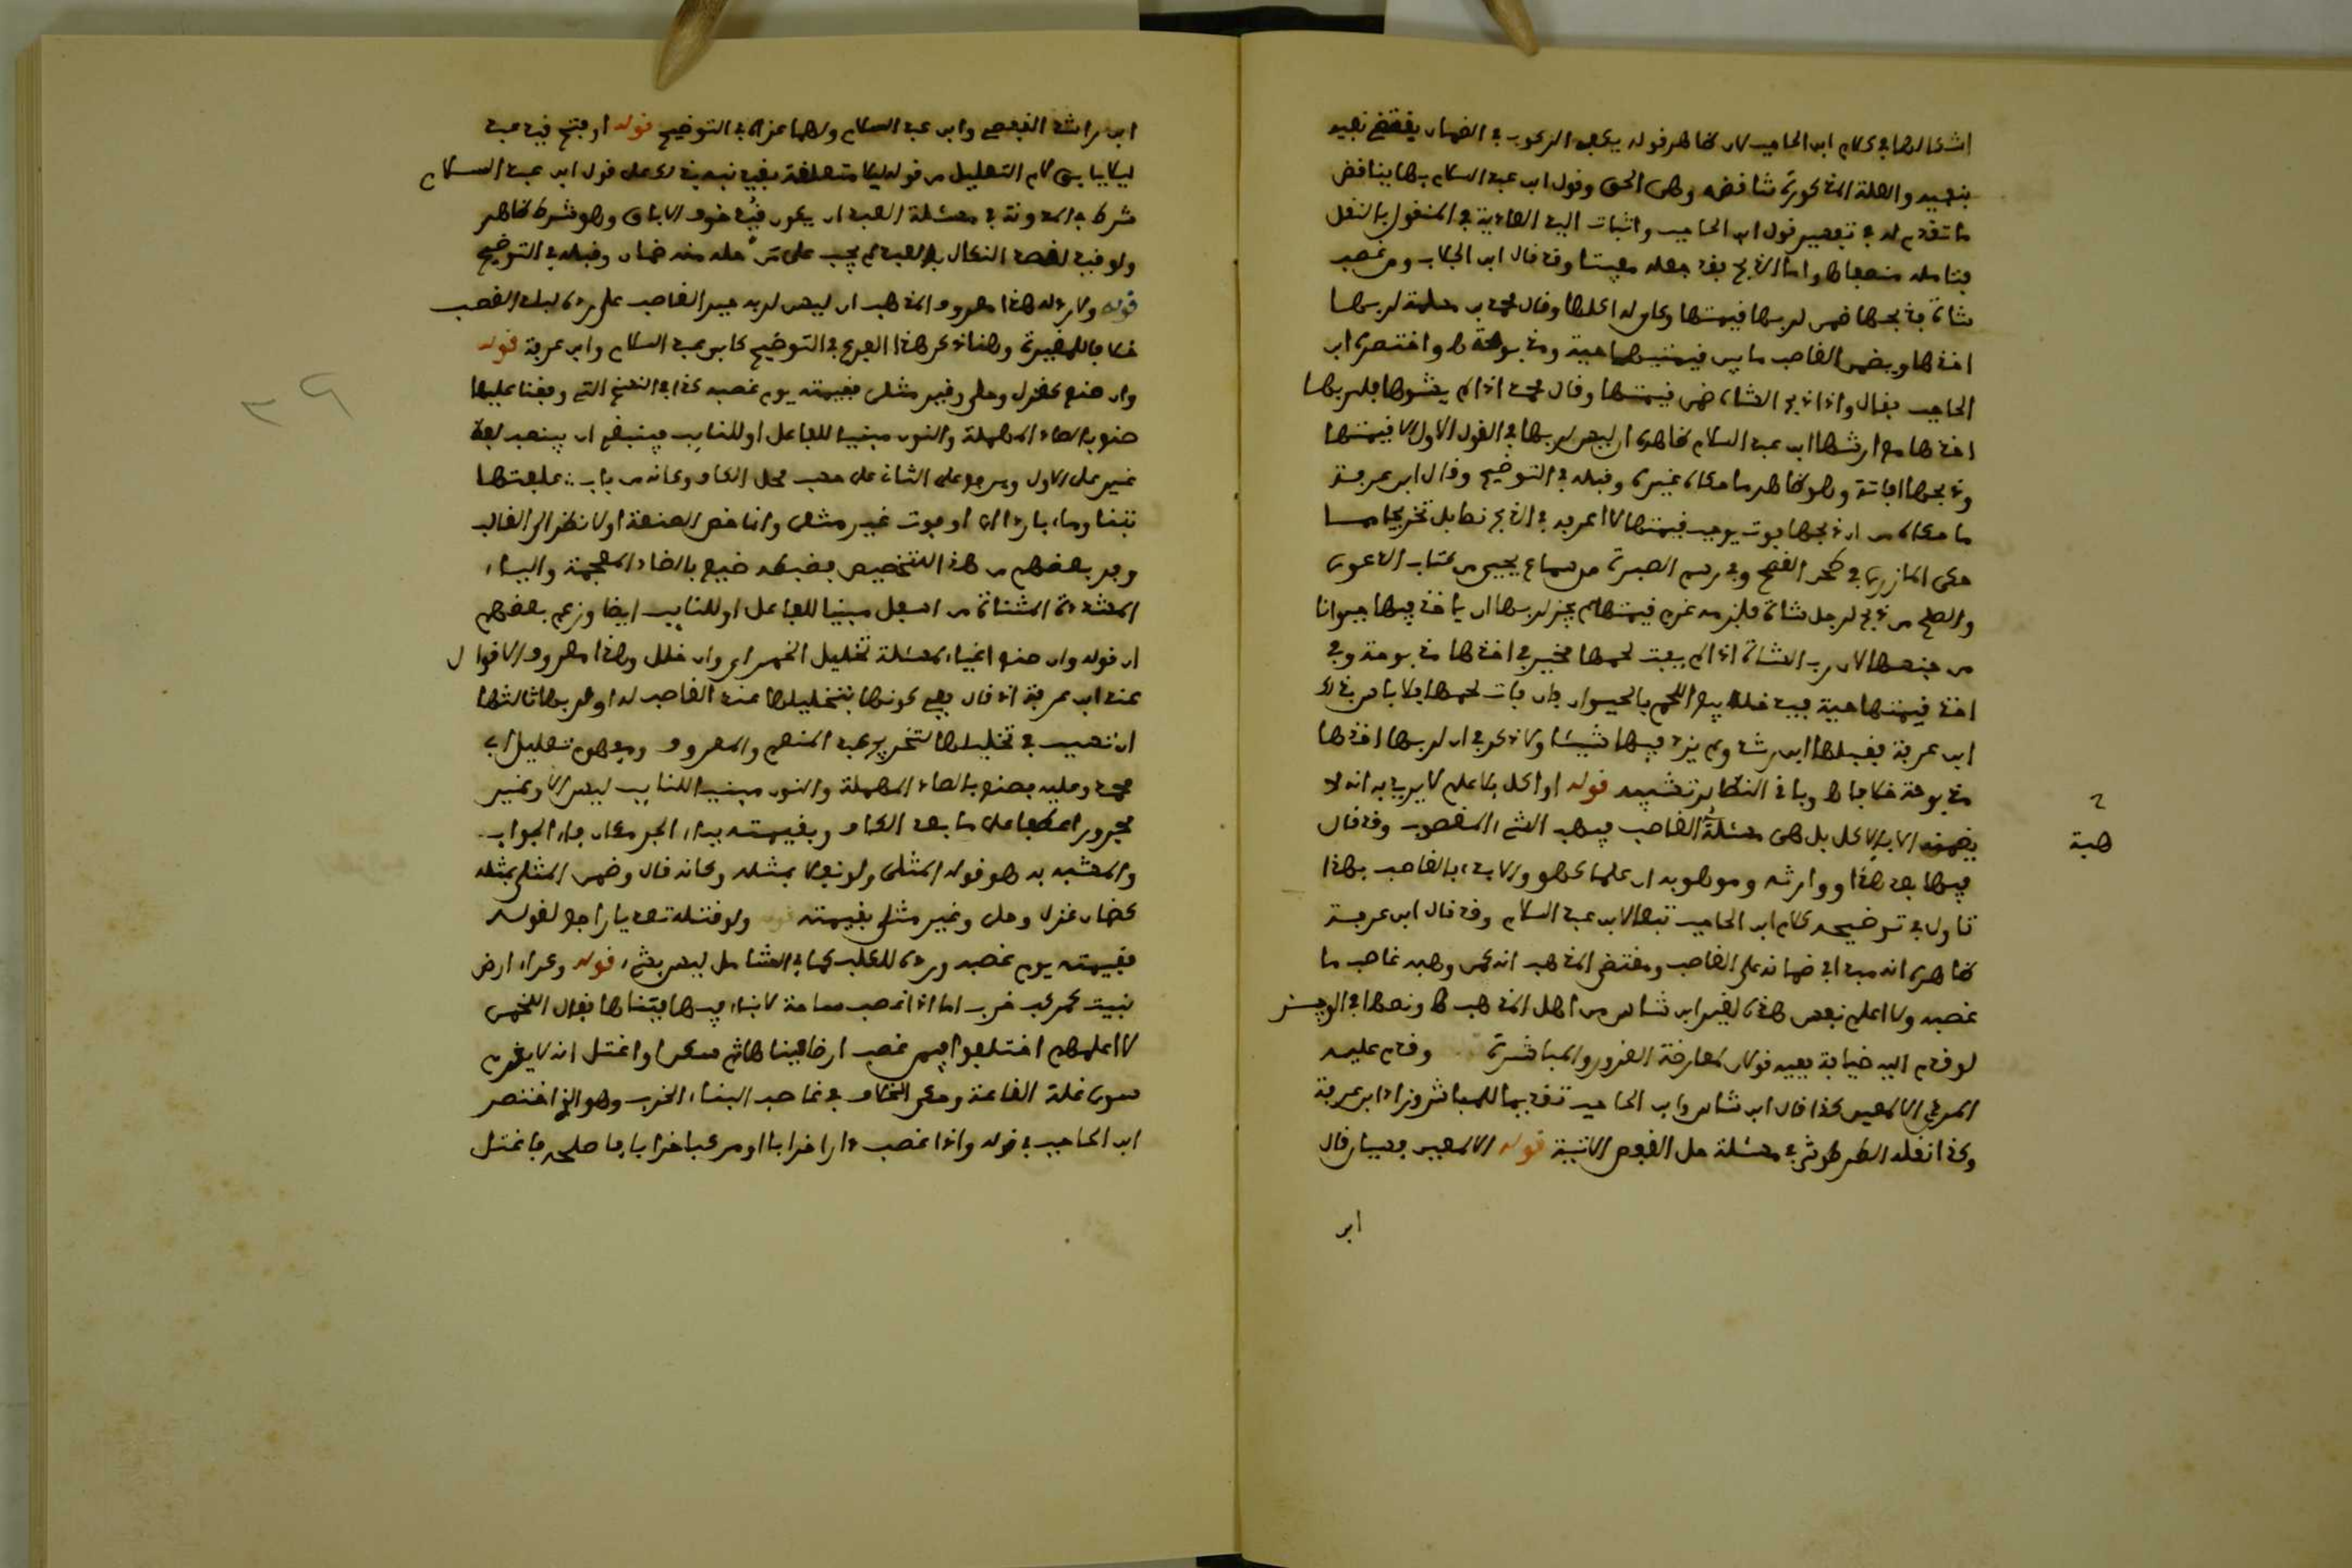 اشكالها في كلام ابن الحاجب لان ظاهر قوله يكفي الركوب في الضمان يقتضي نفيه
بنفيه والعلة المذكورة تناقضه وهى الحق وقول ابن عبد السلام بها يناقض
ما تقدم له في تفسير قول ابن الحاجب واثبات اليد العادية في المنقول بالنقل
فتامله منصفا وا ما الذبح فقد جعله مفيتا وقد قال ابن الجلاب ومن غصب
شاة فذبحها ضمن لربها قيمتها وكان له اكلها وقال محمد بن مسلمة لربها
اخذها ويضمن الغاصب ما بين قيمتيها حية ومذبوحة واختصره ابن
الحاجب فقال واذا ذبح الشاة ضمن قيمتها وقال محمد اذا لم يشوها فلربها
اخذها مع ارشها ابن عبد السلام ظاهره ان ليس لربها في القول الاول الا قيمتها
وذبحها افاتة وهو ظاهر ما حكاه غيره وقبله في التوضيح وقال ابن عرفة
ما حكاه من ان ذبحها فوت يوجب قيمتها لا اعرفه في الذبح نصا بل تخريجا مما
حكى المازري في طحن القمح وفي رسم الصبرة من سماع يحيى من كتاب الدعوى
والصلح من ذبح لرجل شاة فلزمه غرم قيمتها لم يجز لربها ان ياخذ فيها حيوانا
من جنسها لان رب الشاة اذا لم يفت لحمها مخير في اخذها مذبوحة وفي
اخذ قيمتها حية فيدخله بيع اللحم بالحيوان فان فات لحمها فلا باس بذلك
ابن عرفة فقبلها ابن رشد ولم يزد فيها شيئا ولا ذكر في ان لربها اخذها
مذبوحة خلافا وباقي النظائر تشبيه قوله او اكل بلا علم لا يريد به انه لا
يضمنه الا بالاكل بل هى مسئلة الغاصب يهب الشيء المغصوب وقد قال
فيها بعد هذا ووارثه وموهوبه ان علما كهو والا بدء بالغاصب بهذا
تاول في توضيحه كلام ابن الحاجب تبعا لابن عبد السلام وقد قال ابن عرفة
ظاهره انه مبدا في ضمانه على الغاصب ومقتضى المذهب انه كمن وهب غاصب ما
غصبه ولا اعلم نفس هذه لغير ابن شاس من اهل المذهب ونصها في الوجيز
لو قدم اليه ضيافة ففيه قولان لمعارضة الغرور والمباشرة وقدم عليه
كذا قال ابن شاس وابن الحاجب تقديما للمباشر وزاد ابن عرفة
وكذا نقله الطرطوشي في مسئلة حل القفص الاتية قوله قال
ابن
هبة
ابن راشد القفصي وابن عبد السلام ولهما عزاه في التوضيح قوله او فتح قيد عبد
ليلا يابق لام التعليل من قوله ليلا متعلقة بقيد نبه بذلك على قول ابن عبد السلام
شرط في المدونة في مسئلة العبد ان يكون قيد خوف الاباق وهو شرط ظاهر
ولو قيد لقصد النكال بالعبد لم يجب على من حله منه ضمان وقبله في التوضيح
قوله ولا رده هذا معروف المذهب ان ليس لربه جبر الغاصب على رده لبلد الغصب
خلافا للمغيرة وهنا ذكر هذا الفرع في التوضيح كابن عبد السلام وابن عرفة قوله
وان صنع كغزل وحلي وغير مثلى فقيمته يوم غصبه كذا في النسخ التي وقفنا عليها
صنع بالصاد المهملة والنون مبنيا للفاعل او للنايب فينبغي ان ينصب لفظ
غير على الاول ويرفع على الثاني على حسب محل الكاف وكانه من باب : علفتها
تبنا وماء باردا اى او فوت غير مثلى وانما خص الصنعة اولا نظرا الى الغالب
وفر بعضهم من هذا التخصيص فضبطه ضيع بالضاد المعجمة والياء
المشددة المثناة من اسفل مبنيا للفاعل او للنايب ايضا وزعم بعضهم
ان قوله وان صنع اغياء لمسئلة تخليل الخمر اى وان خلل وهذا معروف الاقوال
عند ابن عرفة اذ قال ففي كونها بتخليلها عند الغاصب له او لربها ثالثها
ان تسبب في تخليلها لتخريج عبد المنعم والمعروف ومفهوم تعليل ابي
محمد وعليه فصنع بالصاد المهملة والنون مبنيا للنايب ليس الا وغير
مجرور اعطفا على ما بعد الكاف وبقيمته بباء الجر مكان فاء الجواب
والمشبه به هو قوله المثلى ولو بغلاء بمثله وكانه قال وضمن المثلى بمثله
كضمان غزل وحلى وغير مثلى بقيمته ولو قتله تعديا راجع لقوله
فقيمته يوم غصبه ورده للكلب كما في الشامل ليس بشيء قوله وكراء ارض
بنيت كمركب خرب اما اذا غصب ساحة لا بناء فيها فبناها فقال اللخمى
لا اعلمهم اختلفوا فيمن غصب ارضا فبناها ثم سكن او اغتل انه لا يغرم
سوى غلة القاعة وحكى الخلاف في غاصب البناء الخرب وهو الذي اختصر
ابن الحاجب في قوله واذا غصب دارا خرابا او مركبا خرابا فاصلحه فاغتل
٣٩